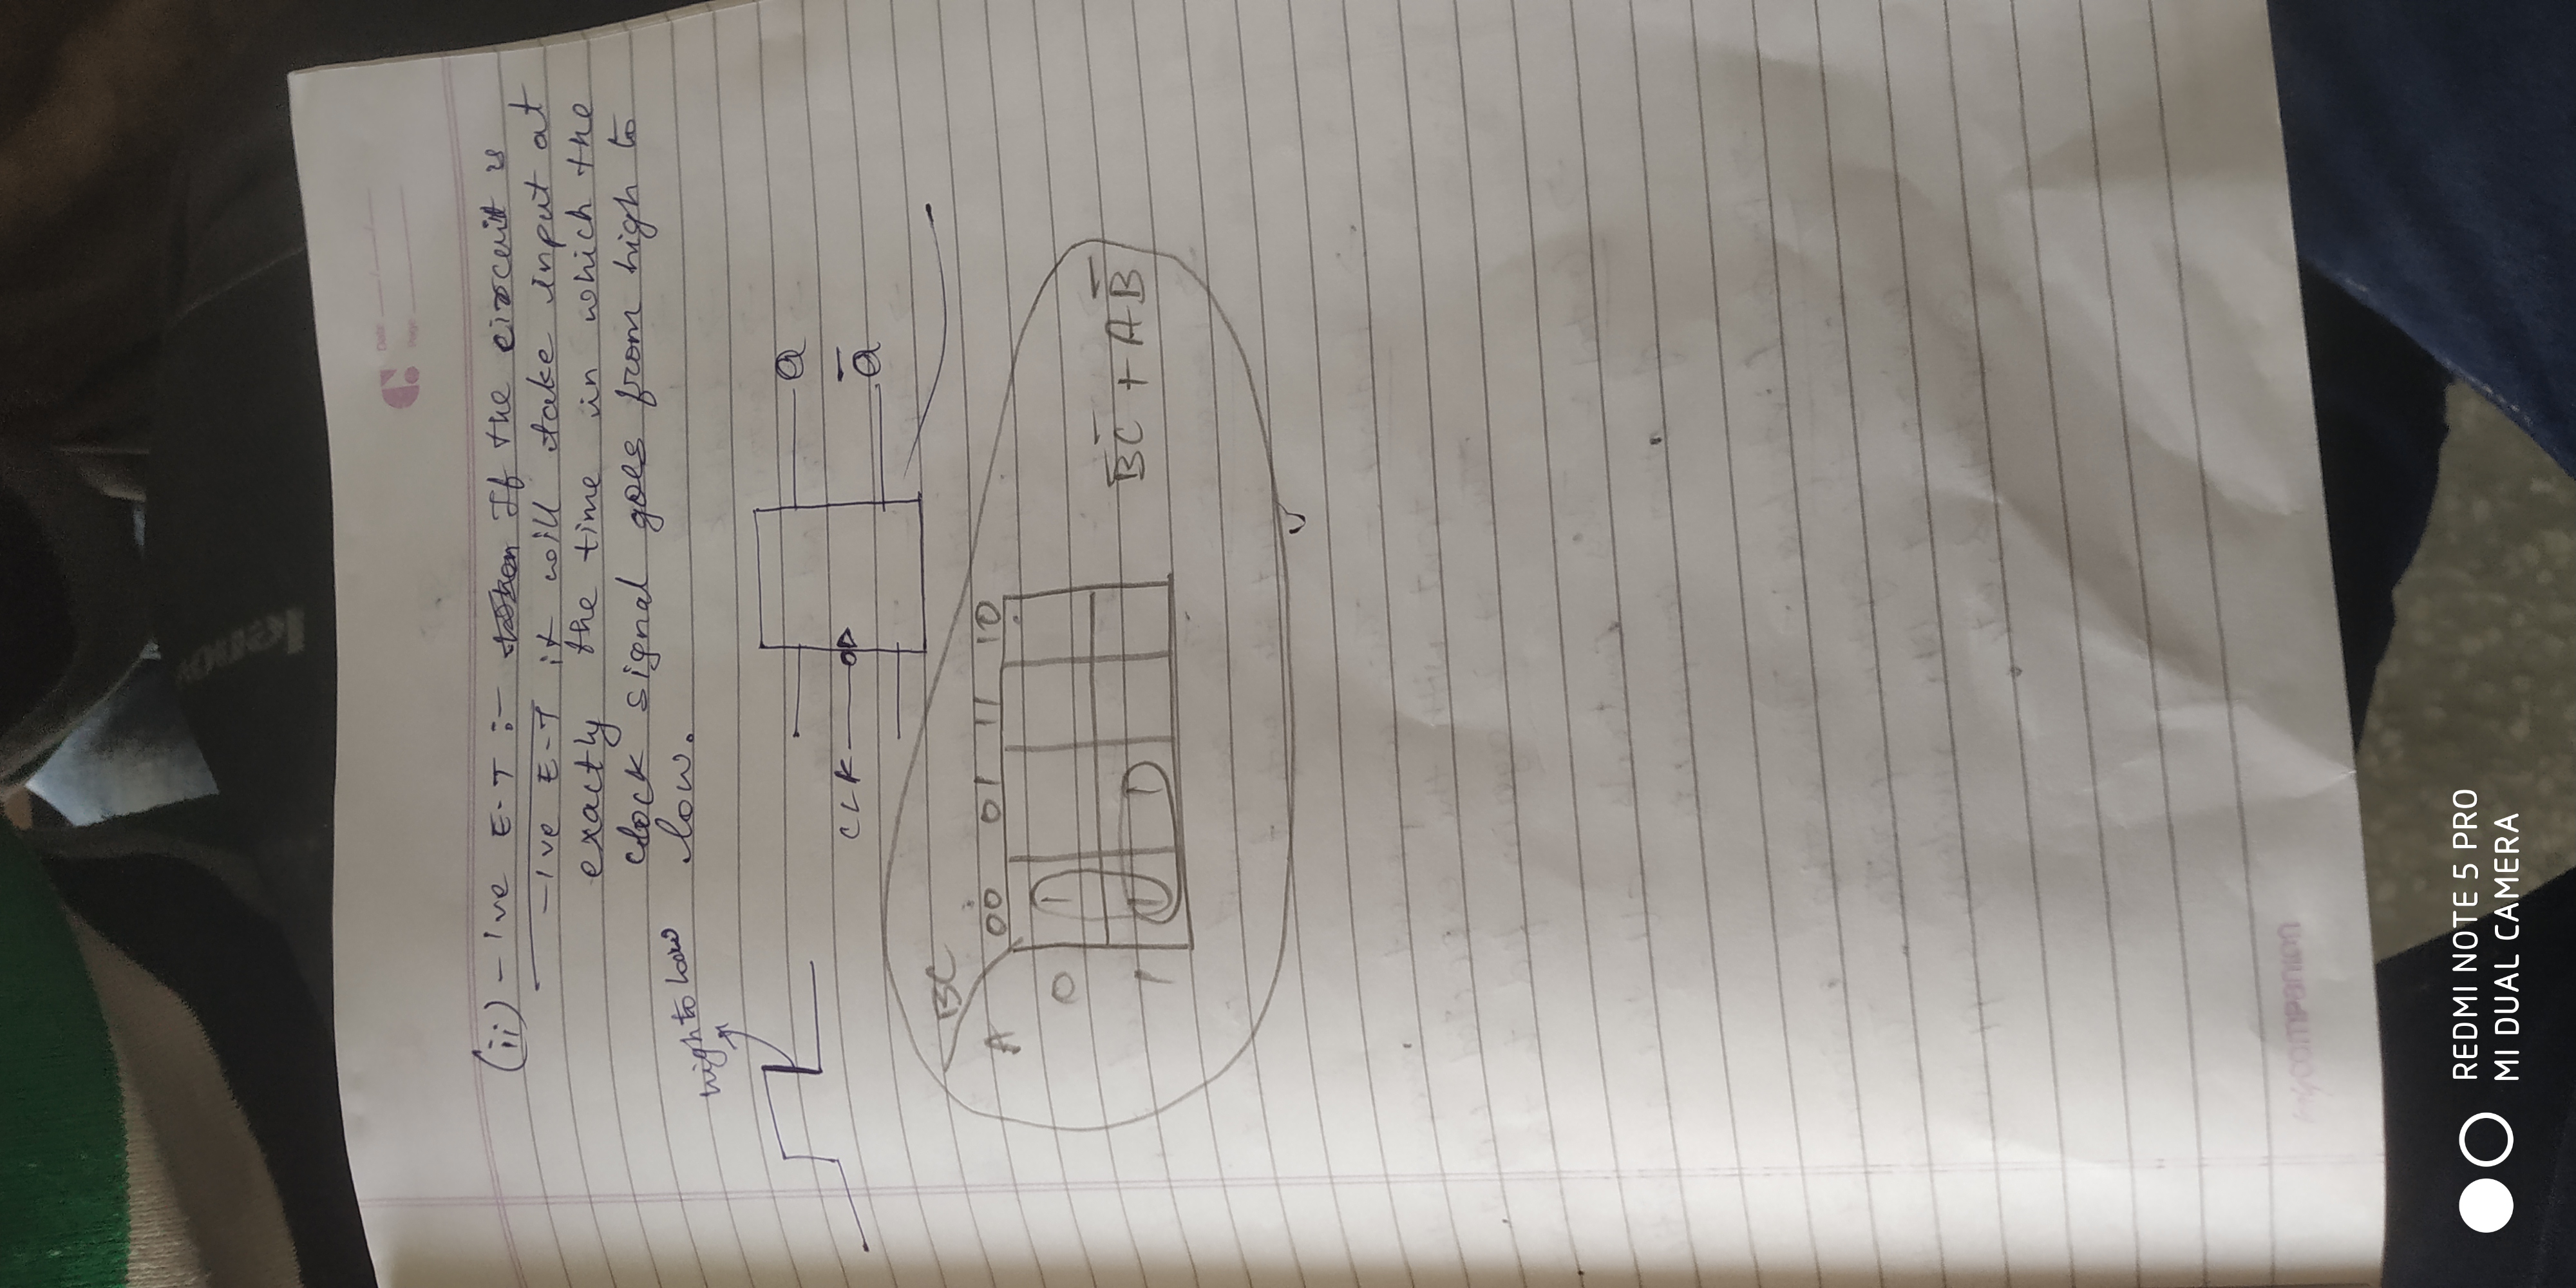 Date
Page
(ii) -'ve E-T :- If the circuit is
-'ve E-T it will take input at
exactly the time in which the
clock signal goes from high to
low.
high to low
Q
CLK
Q̅
BC
A
00 01 11 10
0 1
1 1 1
B̅C̅ + AB̅
mycompanion
REDMI NOTE 5 PRO
MI DUAL CAMERA